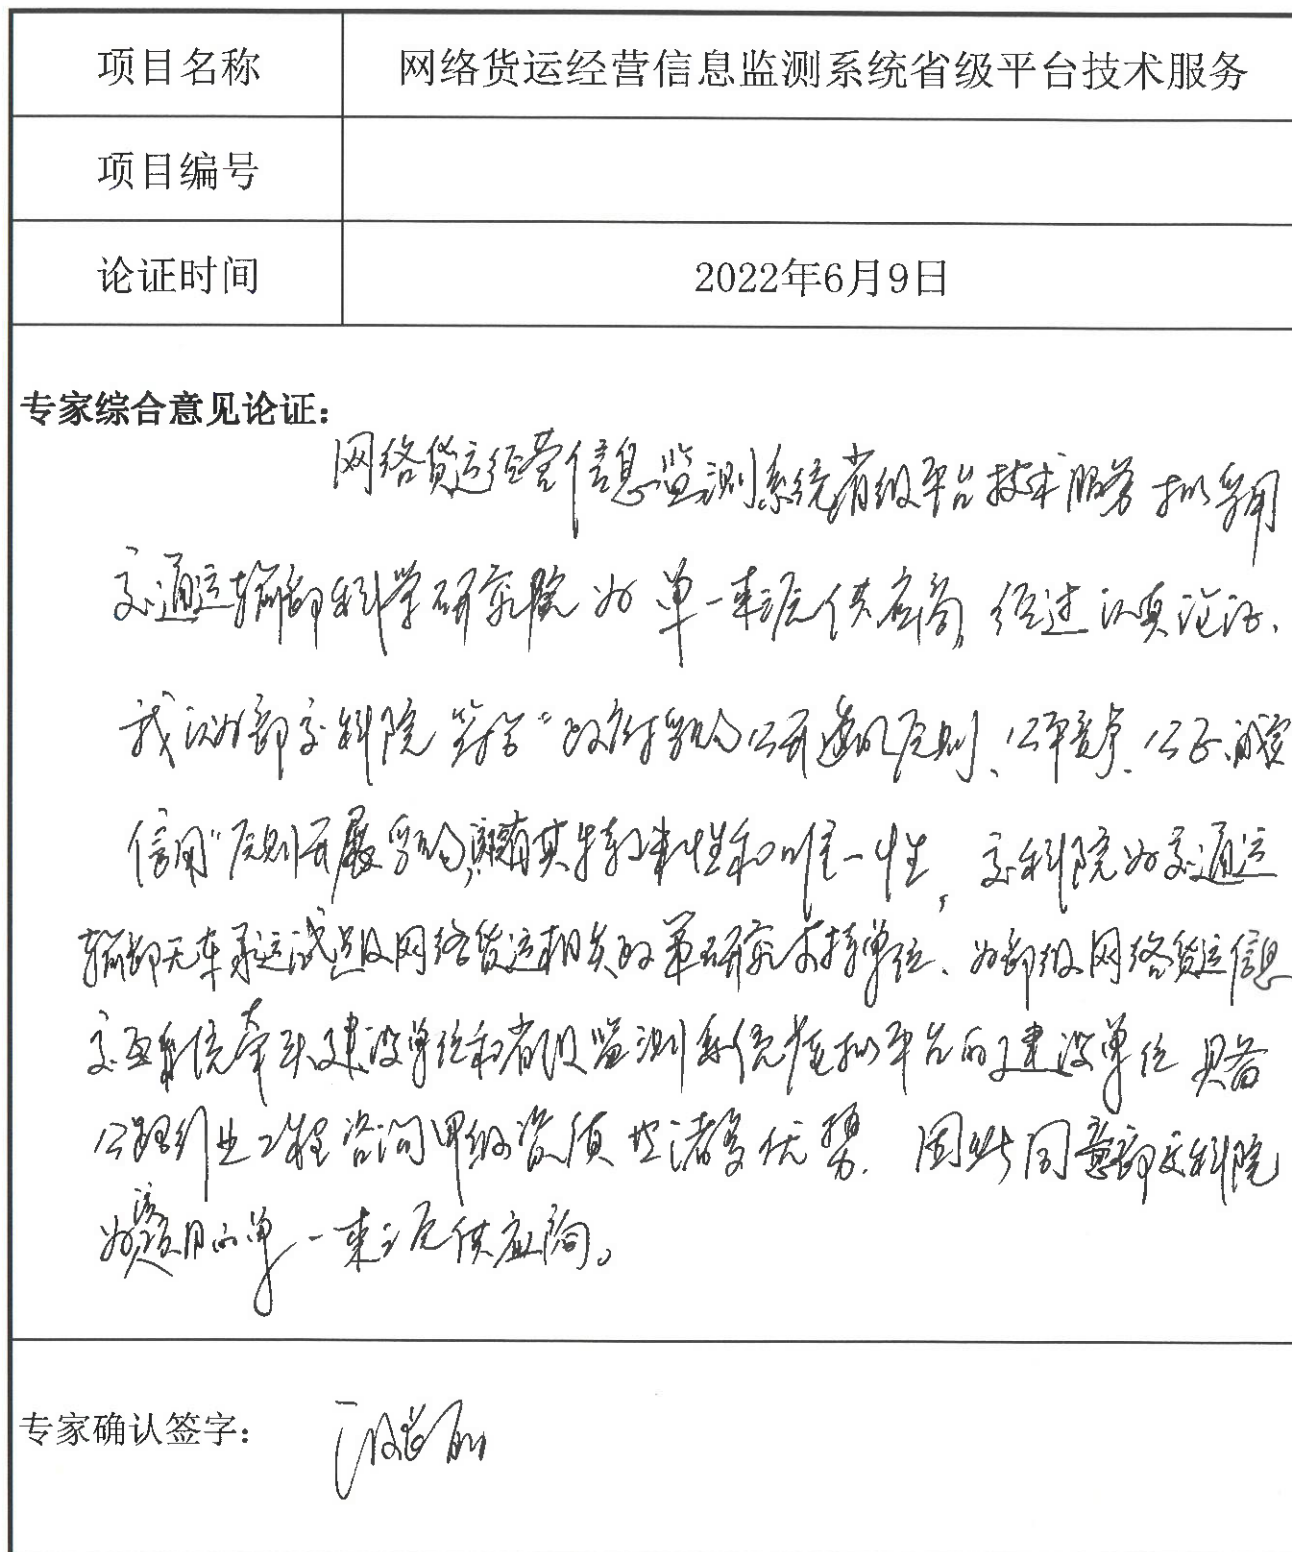 项目名称 网络货运经营信息监测系统省级平台技术服务
项目编号
论证时间 2022年6月9日
专家综合意见论证：
网络货运经营信息监测系统省级平台技术服务拟采用
交通运输部科学研究院为单一来源供应商，经过认真论证、
我认为部交科院符合“政府采购公开透明原则、公平竞争、公正、诚实
信用”原则开展采购，其特殊性和唯一性，交科院为交通运
输部无车承运试点及网络货运相关政策研究支持单位、为部级网络货运信息
交互系统牵头建设单位和省级监测系统模拟平台的建设单位 具备
公路行业工程咨询甲级资质等诸多优势. 因此同意部交科院
为该项目的单一来源供应商。
专家确认签字：